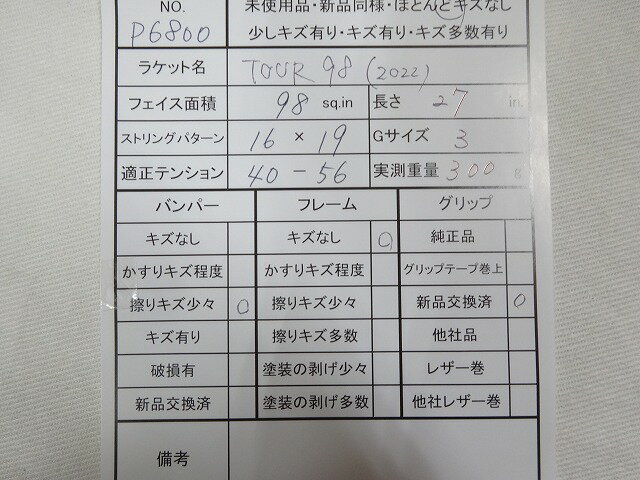 NO. 未使用品・新品同様・ほとんどキズなし
P6800 少しキズ有り・キズ有り・キズ多数有り
ラケット名 TOUR 98 (2022)
フェイス面積 98 sq.in 長さ 27 in.
ストリングパターン 16 × 19 Gサイズ 3
適正テンション 40-56 実測重量 300 g
バンパー フレーム グリップ
キズなし キズなし ○ 純正品
かすりキズ程度 かすりキズ程度 グリップテープ巻上
擦りキズ少々 ○ 擦りキズ少々 新品交換済 ○
キズ有り 擦りキズ多数 他社品
破損有 塗装の剥げ少々 レザー巻
新品交換済 塗装の剥げ多数 他社レザー巻
備考